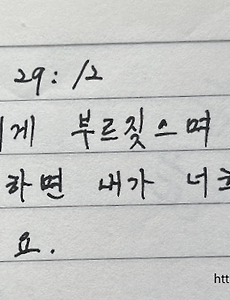 29:12
게 부르짖으며
하면 내가 너희
요.
htt